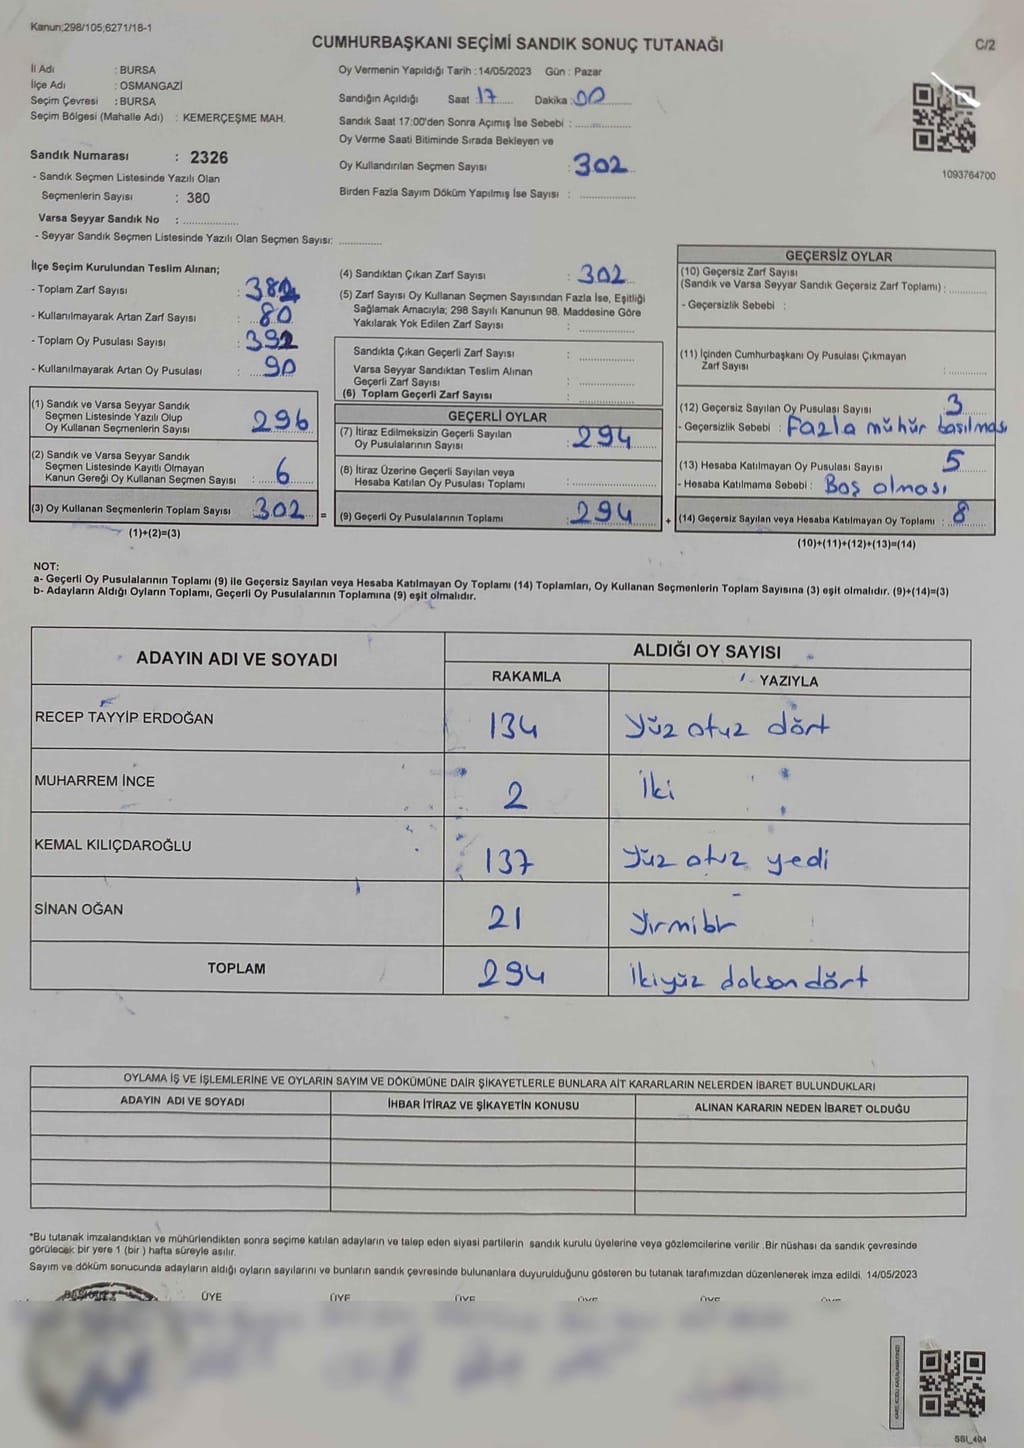 Kanun;298/105;6271/18-1
CUMHURBAŞKANI SEÇİMİ SANDIK SONUÇ TUTANAĞI
C/2
İl Adı : BURSA
İlçe Adı : OSMANGAZİ
Seçim Çevresi : BURSA
Seçim Bölgesi (Mahalle Adı) : KEMERÇEŞME MAH.
Sandık Numarası : 2326
- Sandık Seçmen Listesinde Yazılı Olan
Seçmenlerin Sayısı : 380
Varsa Seyyar Sandık No : ................
- Seyyar Sandık Seçmen Listesinde Yazılı Olan Seçmen Sayısı: ............
Oy Vermenin Yapıldığı Tarih : 14/05/2023 Gün : Pazar
Sandığın Açıldığı Saat : 17 Dakika : 00
Sandık Saat 17:00'den Sonra Açımış İse Sebebi : ................
Oy Verme Saati Bitiminde Sırada Bekleyen ve
Oy Kullandırılan Seçmen Sayısı : 302
Birden Fazla Sayım Döküm Yapılmış İse Sayısı : ................
1093764700
İlçe Seçim Kurulundan Teslim Alınan;
- Toplam Zarf Sayısı :
- Kullanılmayarak Artan Zarf Sayısı : 80
- Toplam Oy Pusulası Sayısı : 392
- Kullanılmayarak Artan Oy Pusulası : 90
(1) Sandık ve Varsa Seyyar Sandık
Seçmen Listesinde Yazılı Olup
Oy Kullanan Seçmenlerin Sayısı 296
(2) Sandık ve Varsa Seyyar Sandık
Seçmen Listesinde Kayıtlı Olmayan
Kanun Gereği Oy Kullanan Seçmen Sayısı : 6
(3) Oy Kullanan Seçmenlerin Toplam Sayısı : 302 =
(1)+(2)=(3)
(4) Sandıktan Çıkan Zarf Sayısı : 302
(5) Zarf Sayısı Oy Kullanan Seçmen Sayısından Fazla İse, Eşitliği
Sağlamak Amacıyla; 298 Sayılı Kanunun 98. Maddesine Göre
Yakılarak Yok Edilen Zarf Sayısı : ................
Sandıkta Çıkan Geçerli Zarf Sayısı : ................
Varsa Seyyar Sandıktan Teslim Alınan
Geçerli Zarf Sayısı : ................
(6) Toplam Geçerli Zarf Sayısı : ................
GEÇERLİ OYLAR
(7) İtiraz Edilmeksizin Geçerli Sayılan
Oy Pusulalarının Sayısı : 294
(8) İtiraz Üzerine Geçerli Sayılan veya
Hesaba Katılan Oy Pusulası Toplamı : ................
(9) Geçerli Oy Pusulalarının Toplamı : 294 +
GEÇERSİZ OYLAR
(10) Geçersiz Zarf Sayısı
(Sandık ve Varsa Seyyar Sandık Geçersiz Zarf Toplamı) : ............
- Geçersizlik Sebebi :
(11) İçinden Cumhurbaşkanı Oy Pusulası Çıkmayan
Zarf Sayısı : ............
(12) Geçersiz Sayılan Oy Pusulası Sayısı 3
- Geçersizlik Sebebi : Fazla mühür basılması
(13) Hesaba Katılmayan Oy Pusulası Sayısı 5
- Hesaba Katılmama Sebebi : Boş olması
(14) Geçersiz Sayılan veya Hesaba Katılmayan Oy Toplamı : 8
(10)+(11)+(12)+(13)=(14)
NOT:
a- Geçerli Oy Pusulalarının Toplamı (9) ile Geçersiz Sayılan veya Hesaba Katılmayan Oy Toplamı (14) Toplamları, Oy Kullanan Seçmenlerin Toplam Sayısına (3) eşit olmalıdır. (9)+(14)=(3)
b- Adayların Aldığı Oyların Toplamı, Geçerli Oy Pusulalarının Toplamına (9) eşit olmalıdır.
ADAYIN ADI VE SOYADI
ALDIĞI OY SAYISI
RAKAMLA YAZIYLA
RECEP TAYYİP ERDOĞAN 134 Yüz otuz dört
MUHARREM İNCE 2 İki
KEMAL KILIÇDAROĞLU 137 Yüz otuz yedi
SİNAN OĞAN 21 Yirmibir
TOPLAM 294 İkiyüz doksan dört
OYLAMA İŞ VE İŞLEMLERİNE VE OYLARIN SAYIM VE DÖKÜMÜNE DAİR ŞİKAYETLERLE BUNLARA AİT KARARLARIN NELERDEN İBARET BULUNDUKLARI
ADAYIN ADI VE SOYADI İHBAR İTİRAZ VE ŞİKAYETİN KONUSU ALINAN KARARIN NEDEN İBARET OLDUĞU
*Bu tutanak imzalandıktan ve mühürlendikten sonra seçime katılan adayların ve talep eden siyasi partilerin sandık kurulu üyelerine veya gözlemcilerine verilir .Bir nüshası da sandık çevresinde
görülecek bir yere 1 (bir ) hafta süreyle asılır.
Sayım ve döküm sonucunda adayların aldığı oyların sayılarını ve bunların sandık çevresinde bulunanlara duyurulduğunu gösteren bu tutanak tarafımızdan düzenlenerek imza edildi. 14/05/2023
BAŞKAN ÜYE ÜYE ÜYE ÜYE ÜYE ÜYE
SBI_404